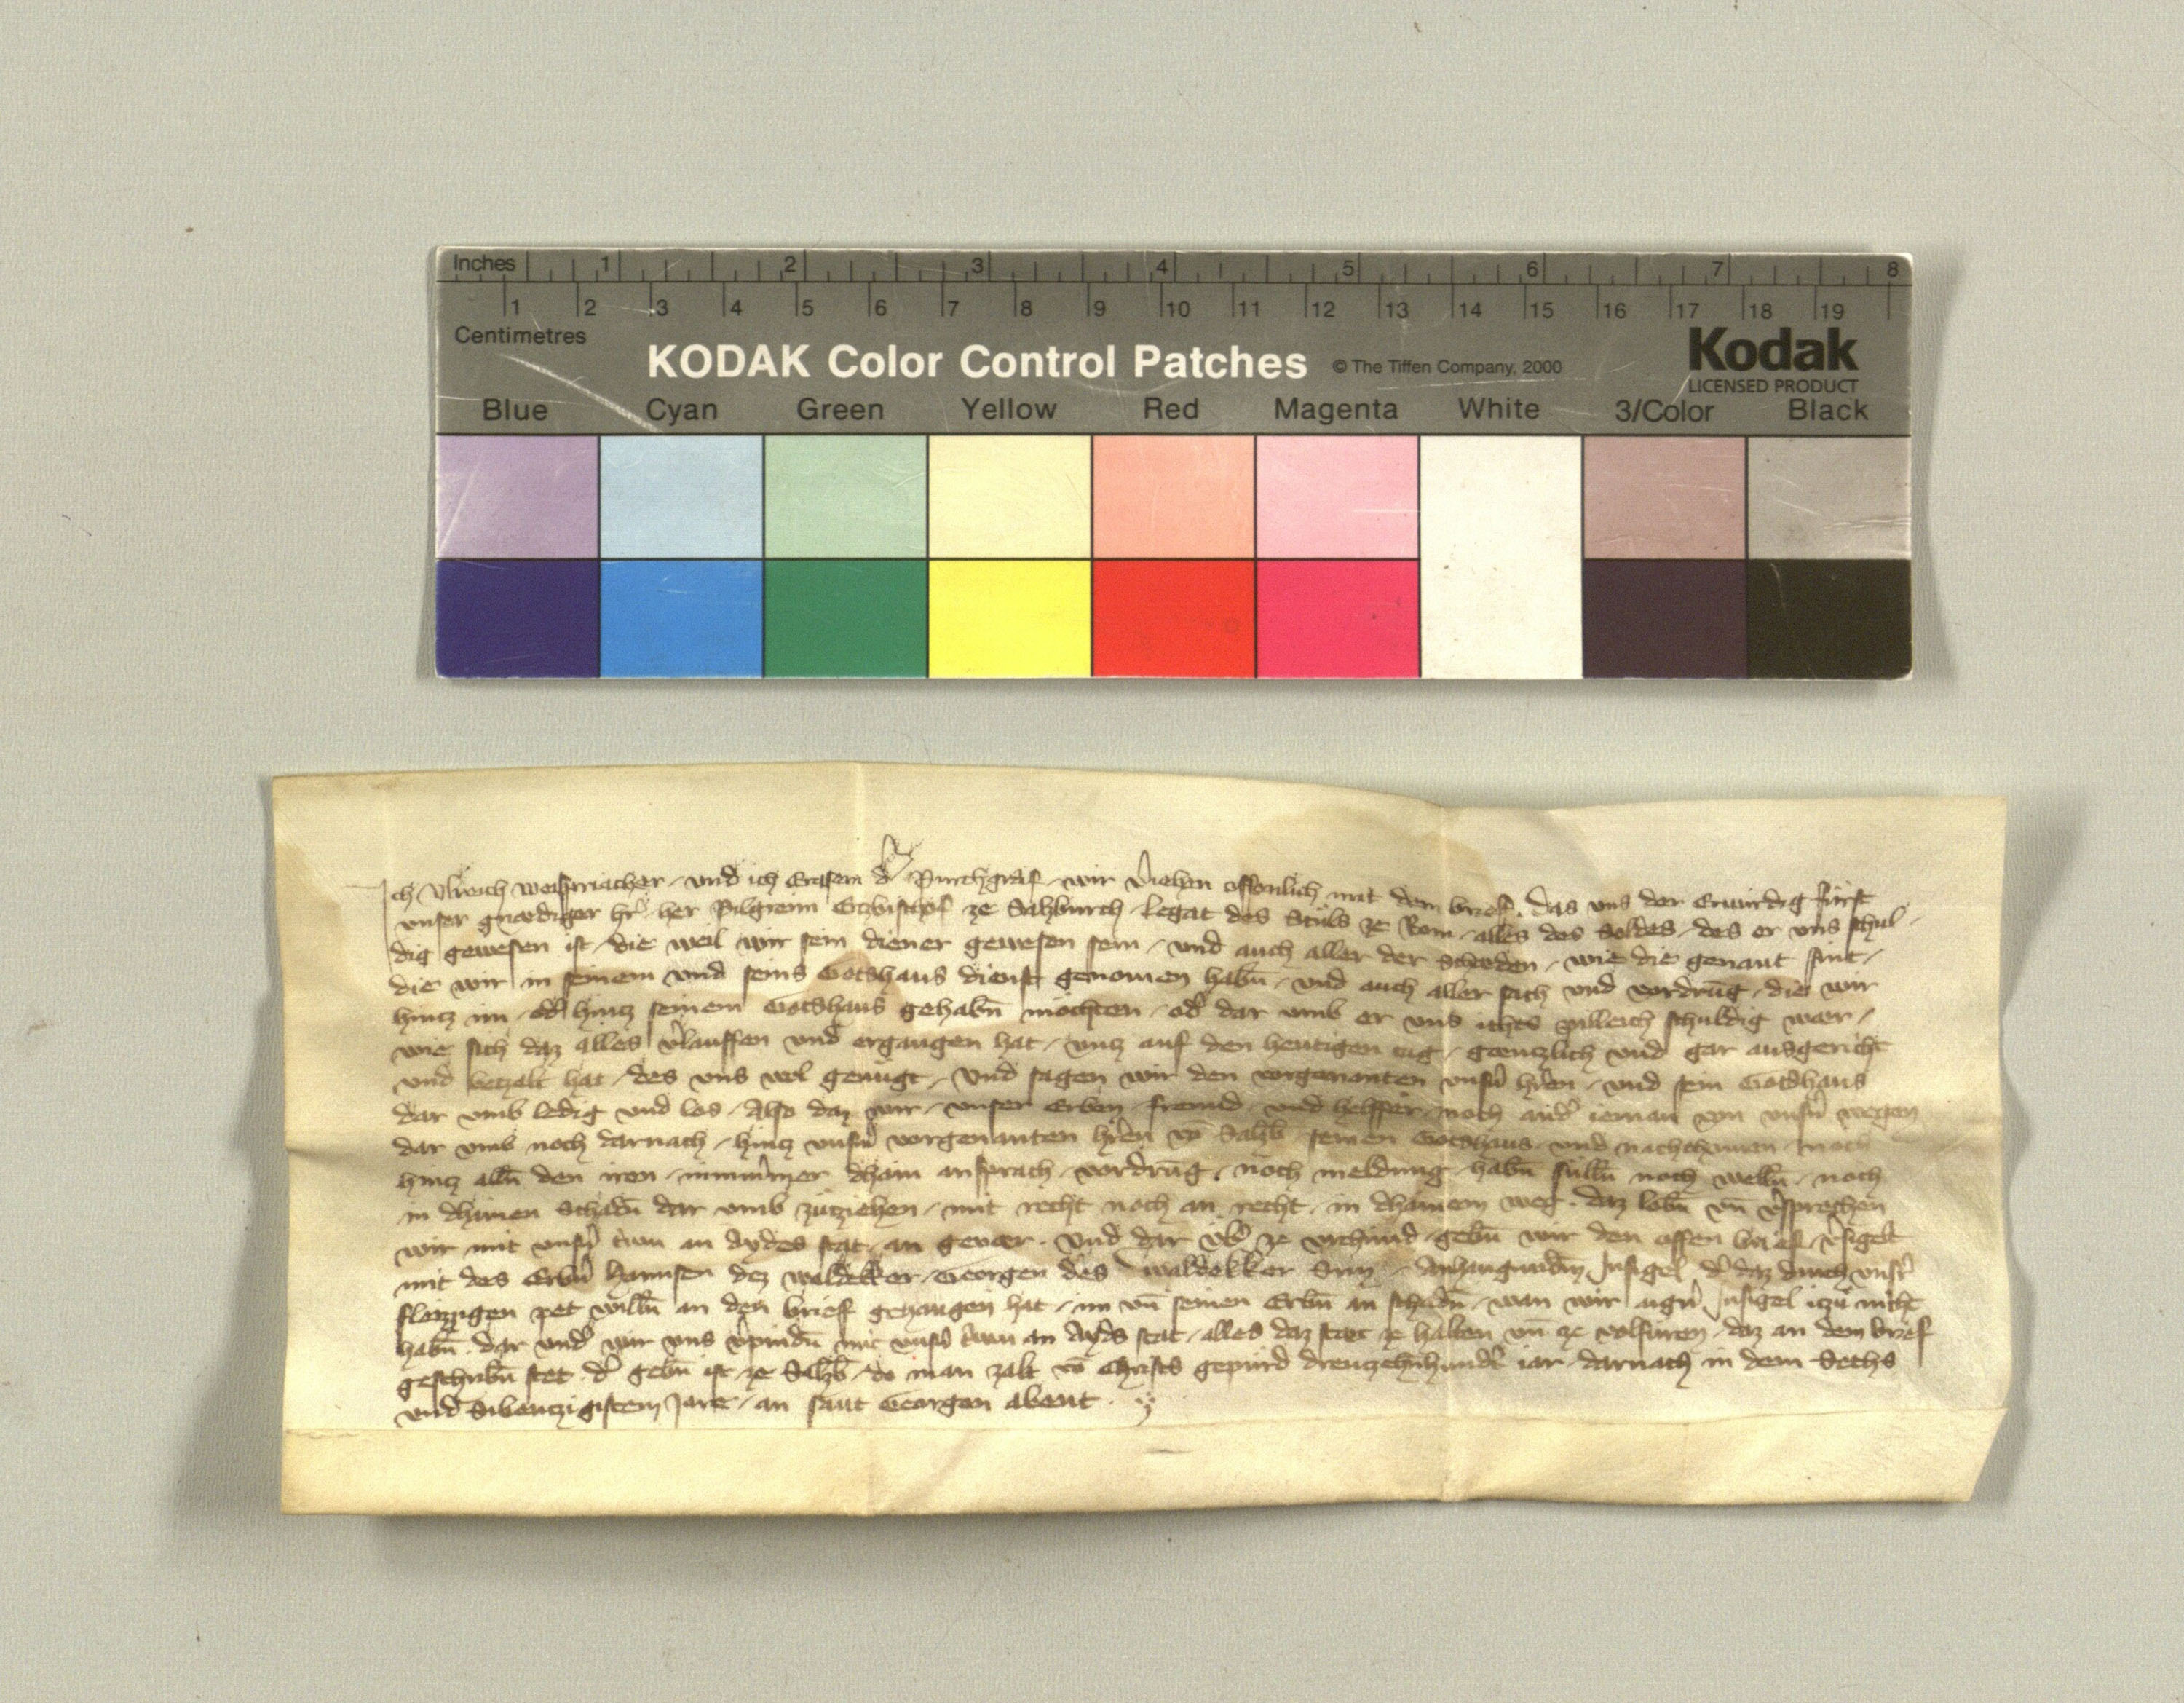 Inches 1 2 3 4 5 6 7 8
1 2 3 4 5 6 7 8 9 10 11 12 13 14 15 16 17 18 19
Centimetres
KODAK Color Control Patches © The Tiffen Company, 2000 Kodak
LICENSED PRODUCT
Blue Cyan Green Yellow Red Magenta White 3/Color Black
Ich Ulreich weispriacher und ich Erasem d' Purchgraf wir v'iehen offenlich mit dem brief, das uns der Erwirdig fürst
unser gnædiger hr' her Pilgreim Ertzbischof ze Salzburch Legat des Stůls ze Rom alles des Soldes des er uns schul
dig gewesen ist die weil wir sein diener gewesen sein und auch aller der Schæden wie die genant sint
die wir in seinem und seins Gotshaus dienst genomen habn̄ und auch aller sach und vordrūg die wir
hintz im od' hintz seinem Gotshaus gehabn̄ möchten od' dar umb er uns ichts pilleich schuldig wær
wie sich daz alles v'lauffen und ergangen hat untz auf den heutigen tag gæntzlich und gar ausgericht
und betzalt hat des uns wol genůgt Und sagen wir den vorgenanten unsn' hr'en und sein Gotshaus
dar umb ledig und los Also daz wir unser Erben freund und helffer noch and' ieman von unsn' wegen
dar umb noch darnach hintz unsn' vorgenanten hr'en vō Salzb̄ seinen Gotshaus und nachchomen noch
hintz alln̄ den iren nimm'mer dhain ansprach vordrūg noch meldung habn̄ sulln̄ noch welln̄ noch
in dhainen Schadn̄ dar umb zůtziehen mit recht noch an recht in dhainem weg daz lobn̄ un̄ v'sprechen
wir mit unsn' trwn an Aydes stat an gevær Und dar üb' ze urchund gebn̄ wir den offen brief v'sigelt
mit des Erbn' Hannsen dez waldekker Georgen des waldekker Sun Anhangundm̄ Insigel d' daz durch unsr'
fleizzigen pet willn̄ an den brief gehangen hat im un̄ seinen Erbn̄ an schadn̄ wan wir aign' Insigel nicht
habn̄ dar und' wir uns v'pindn̄ mit unsn' trwn an Ayds stat alles daz stæt ze halten un̄ ze volfüren daz an dem brief
geschribn̄ stet d' gebn̄ ist ze Salzb̄ do man zalt vō Christs gepürd dreutzehnhundr't iar darnach in dem Sechs
und Sibentzigistem Jare an sant Georgen abent